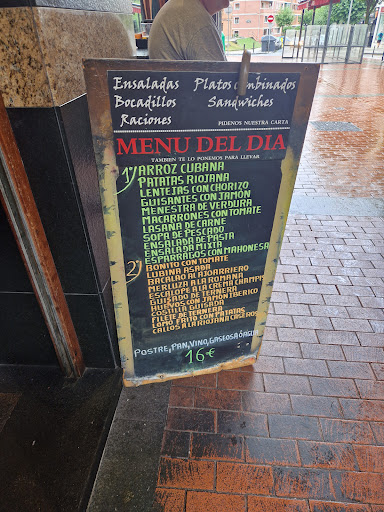 Ensaladas Platos Combinados
Bocadillos Sandwiches
Raciones PIDENOS NUESTRA CARTA
MENU DEL DIA
TAMBIEN TE LO PONEMOS PARA LLEVAR
1º) ARROZ CUBANA
PATATAS RIOJANA
LENTEJAS CON CHORIZO
GUISANTES CON JAMÓN
MENESTRA DE VERDURA
MACARRONES CON TOMATE
LASAÑA DE CARNE
SOPA DE PESCADO
ENSALADA DE PASTA
ENSALADA MIXTA
ESPARRAGOS CON MAHONESA
2º) BONITO CON TOMATE
LUBINA ASADA
BACALAO AL AJOARRIERO
MERLUZA A LA ROMANA
ESCALOPE A LA CREMA CHAMPIS
GUISADO DE TERNERA
HUEVOS CON JAMON IBERICO
COSTILLA GUISADA
FILETE DE TERNERA
LOMO FRITO CON PATATAS
CALLOS A LA RIOJANA CASEROS
POSTRE, PAN, VINO, GASEOSA O AGUA
16€